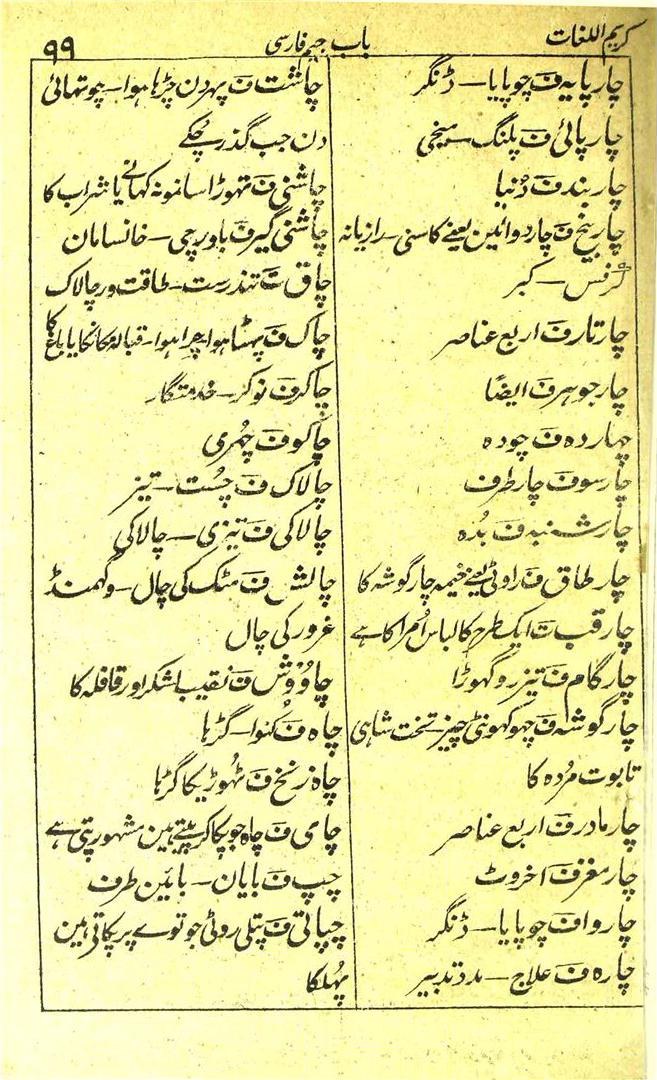 کریم اللغات
باب جیم فارسی
۹۹
چارپایہ ف چوپایا — ڈنگر
چارپائی ف پلنگ — سیخی
چاربند ف دُنیا
چاربیخ ف چار دوائین یعنے کاسنی — رازیانہ
کرفس — کبر
چارتار ف اربع عناصر
چارجوہر ف ایضًا
چہاردہ ف چودہ
چارسو ف چار طرف
چارشنبہ ف بُدہ
چارطاق ف راوٹی یعنے خیمہ چار گوشہ کا
چارقب ت ایک طرح کا لباس اُمرا کا ہے
چارگام ف تیز رو گھوڑا
چارگوشہ ف چوکھونٹی چیز — تخت شاہی
تابوت مُردہ کا
چارمادر ف اربع عناصر
چارمغز ف اخروٹ
چاروا ف چوپایا — ڈنگر
چارہ ف علاج — مدد تدبیر
چاشت ف پہر دن چڑہا ہوا — چوتہائی
دن جب گذر چُکے
چاشنی ف تہوڑا سا نمونہ کہانے یا شراب کا
چاشنی گیر ف باورچی — خانسامان
چاق ت تندرست — طاقت ور چالاک
چاک ف پہٹا ہوا چرا ہوا — قبالہ مکانکا یا باغ کا
چاکر ف نوکر — خدمتگار
چاکو ف چُھری
چالاک ف چُست — تیز
چالاکی ف تیزی — چالاکی
چالش ف مٹک کی چال — و گھمنڈ
غرور کی چال
چاؤش ف نقیب لشکر اور قافلہ کا
چاہ ف کُنوا — گڑہا
چاہ زنخ ف ٹہوڑیکا گڑہا
چای ف چاہ جو پکا کر پیتے ہین مشہور پتی ہے
چپ ف بایان — بائین طرف
چپاتی ف پتلی روٹی جو توے پر پکاتی ہین
پُہلکا